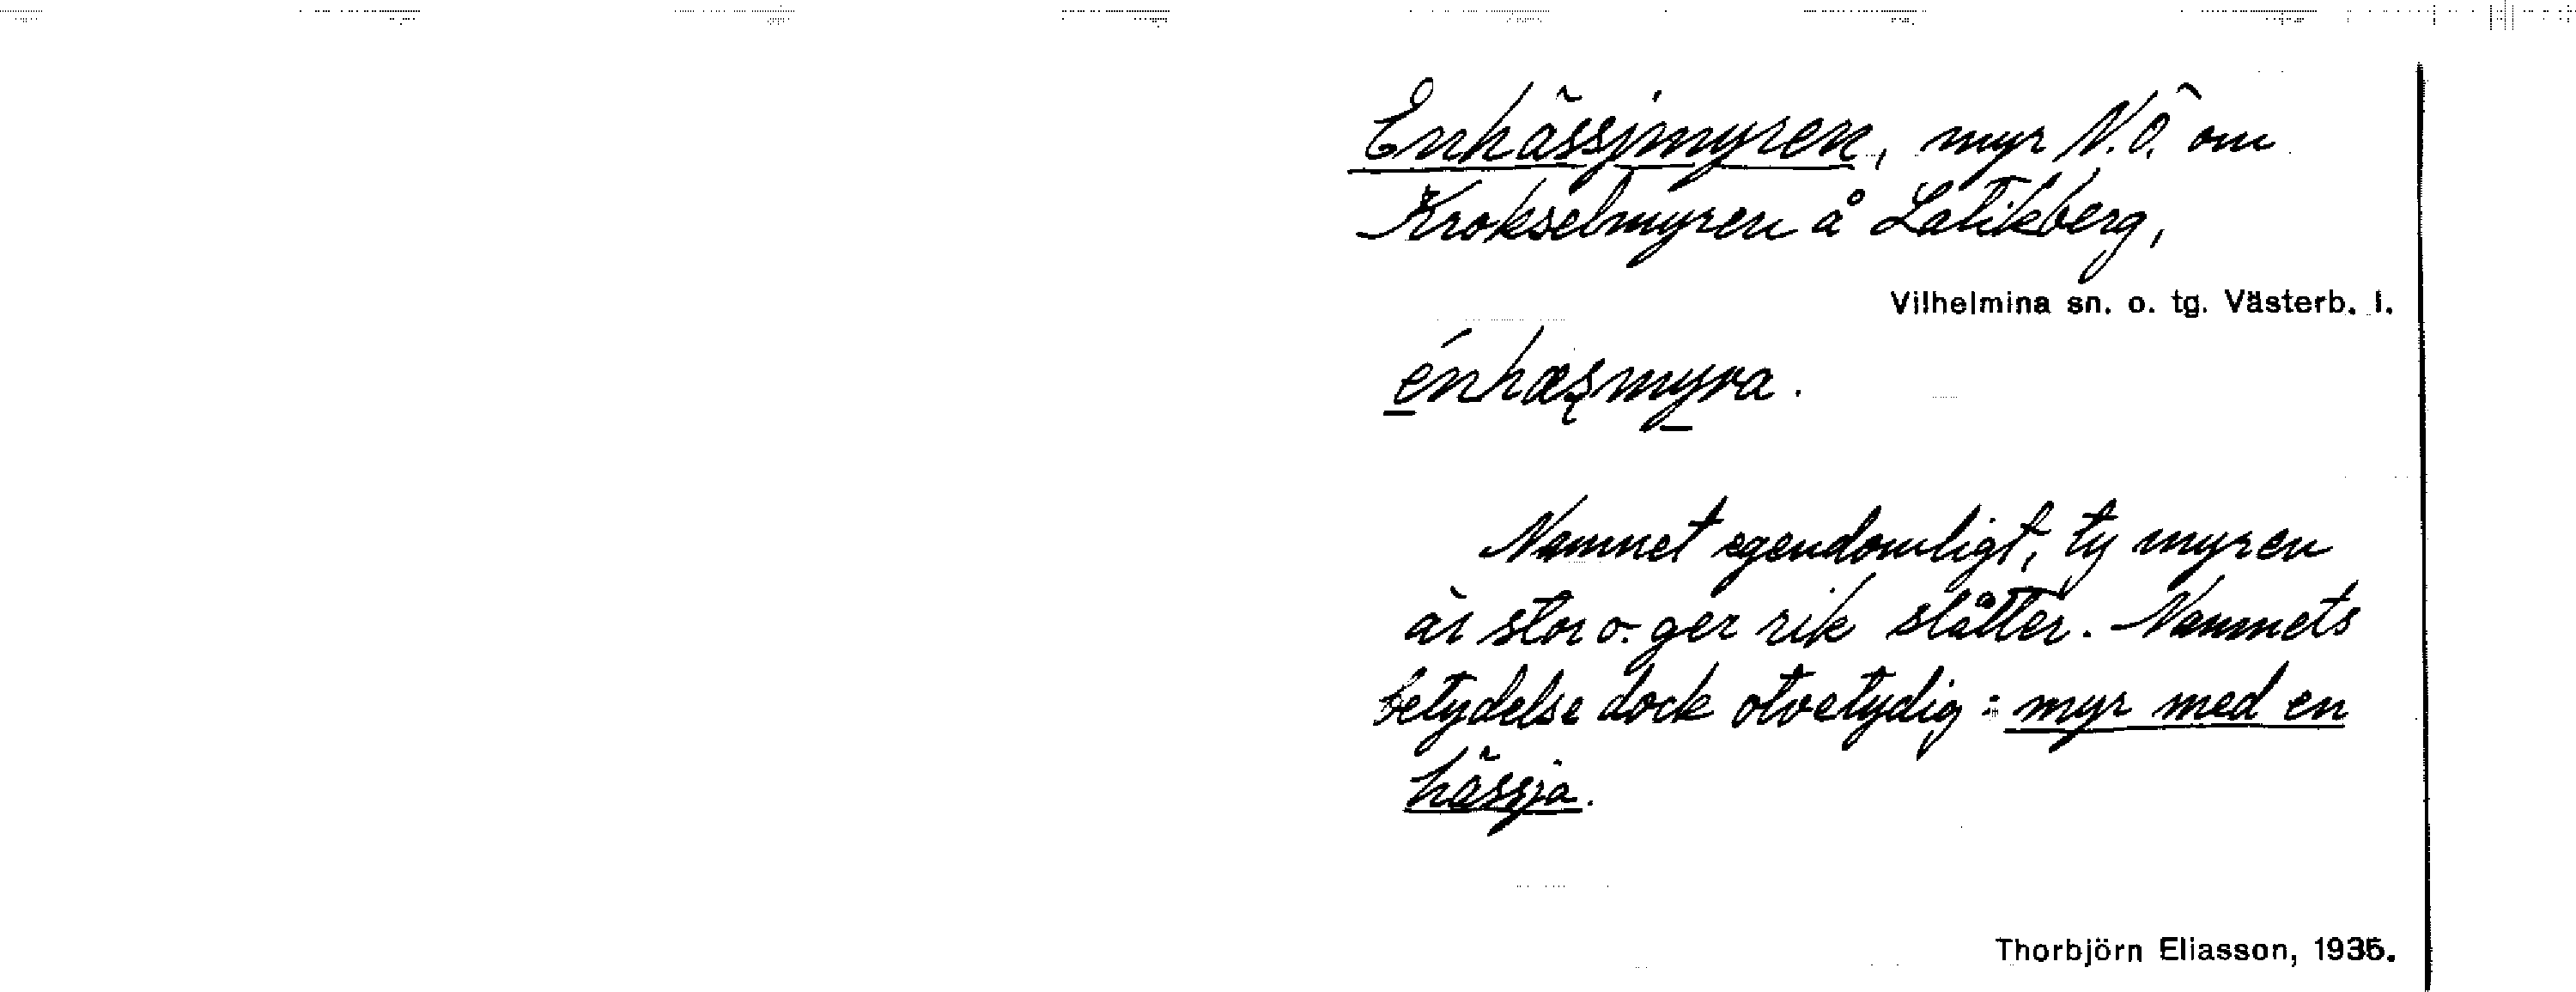 Enhässjmyren, myr N.Ö. om
Krokselmyren å Latikberg,
Vilhelmina sn. o. tg. Västerb. l.
énhæșmyra.
Namnet egendomligt, ty myren
är stor o. ger rik slåtter. Namnets
betydelse dock otvetydig: myr med en
hässja.
Thorbjörn Eliasson, 1935.